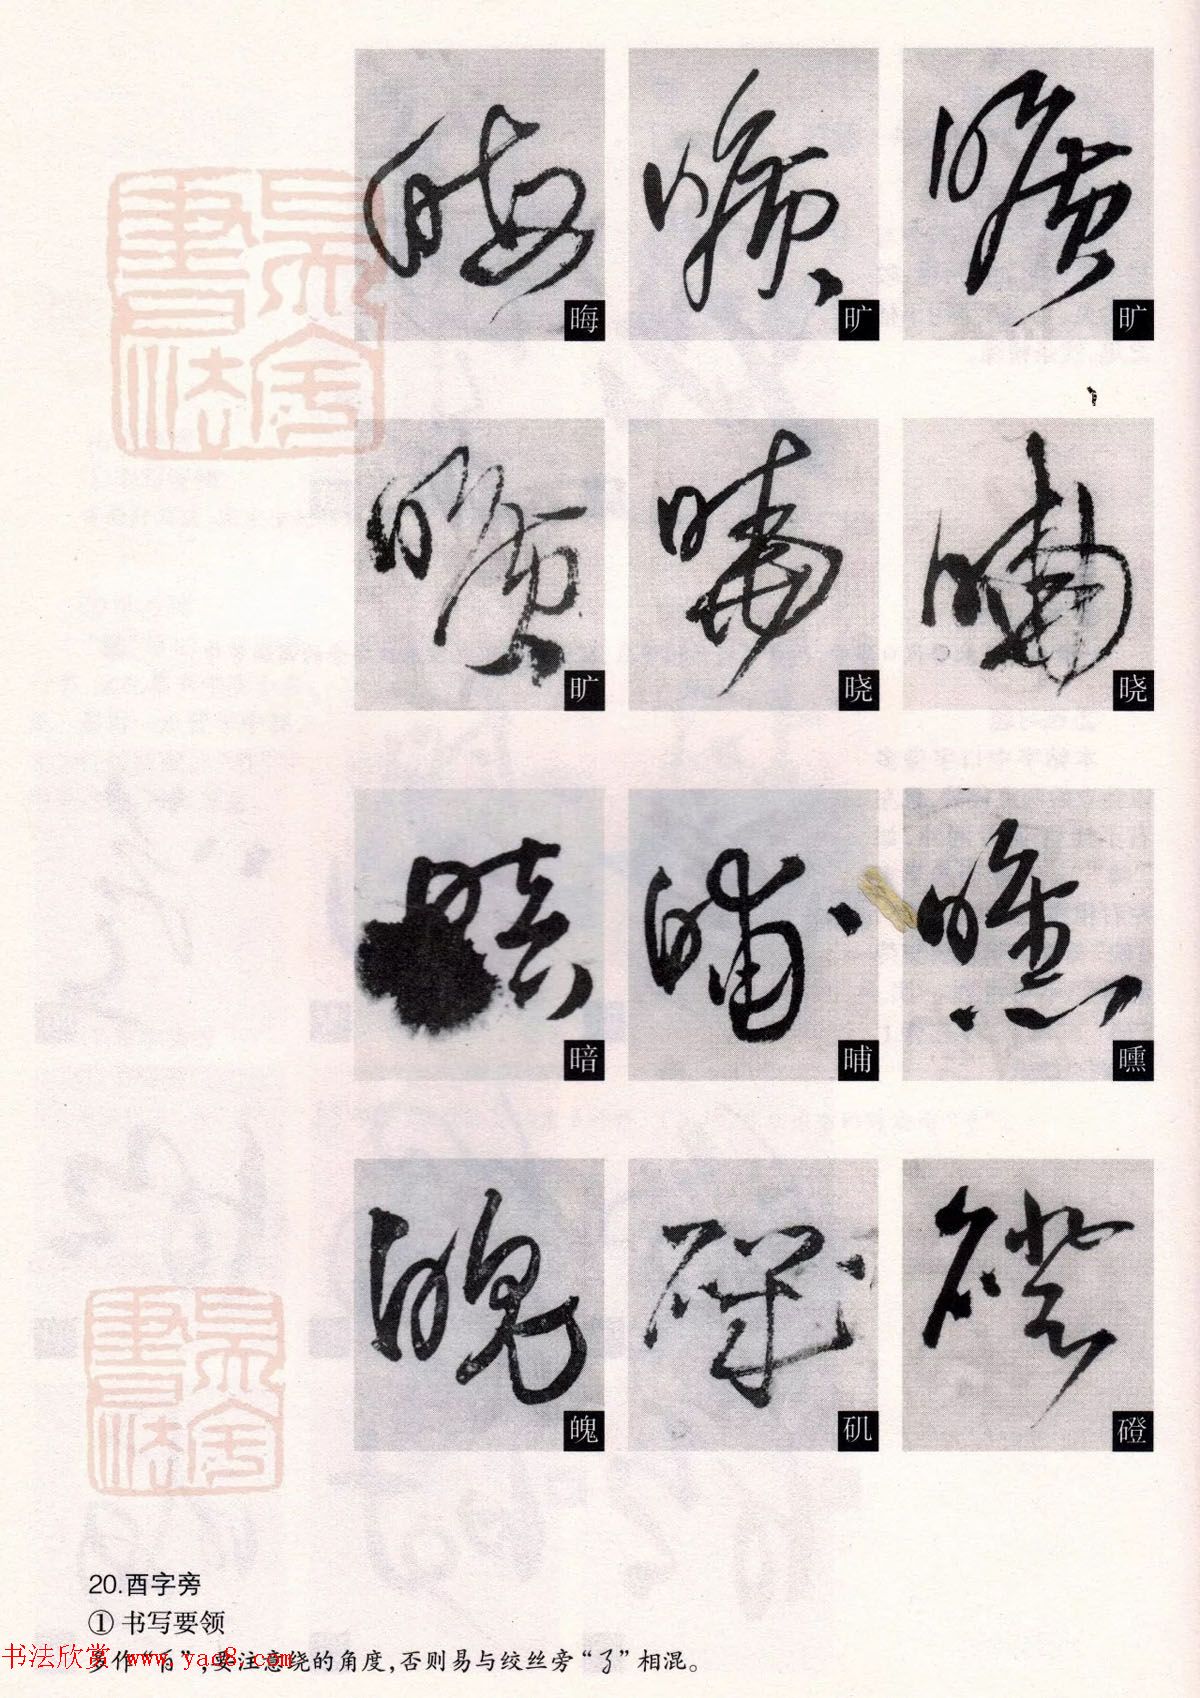 晦 旷 旷
旷 晓 晓
暗 晡 曛
魄 矶 磴
20.酉字旁
① 书写要领
多作“ ”,要注意绕的角度,否则易与绞丝旁“ ”相混。
书法欣赏 www.yac8.com